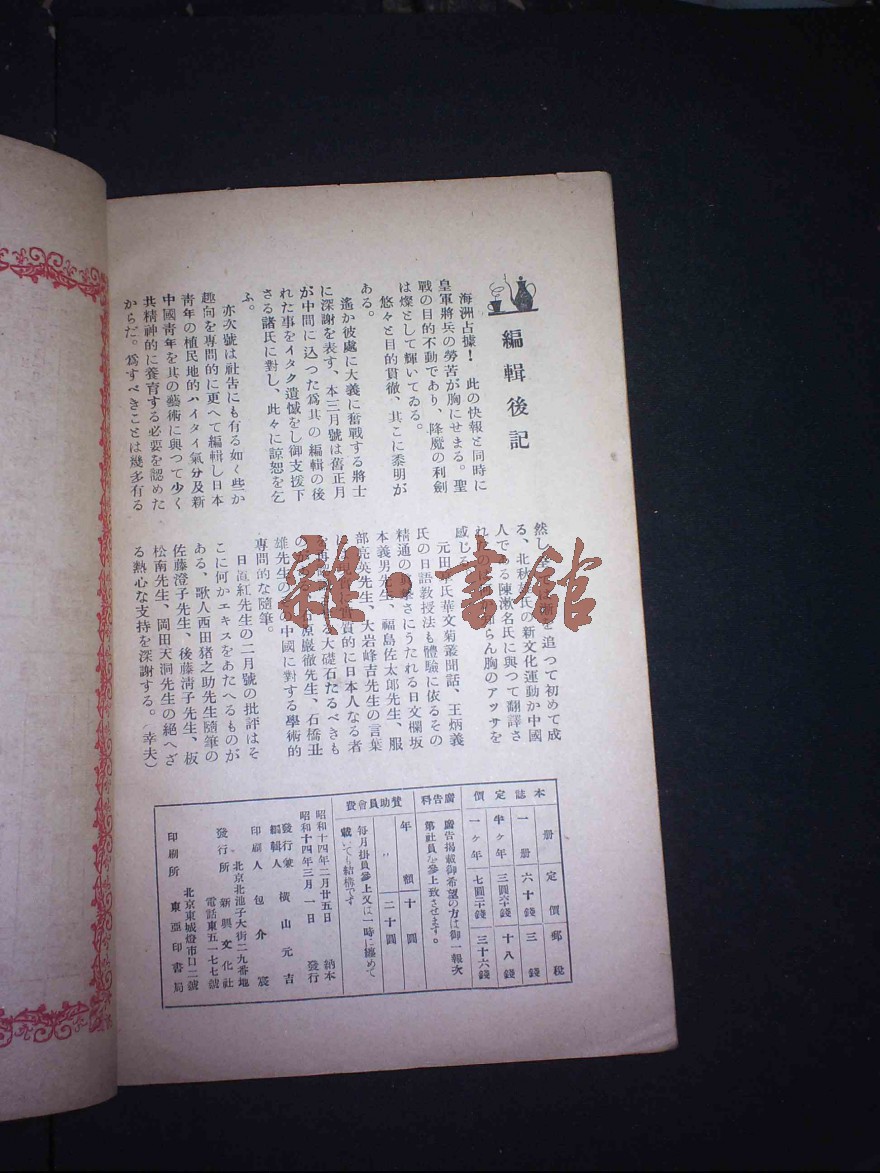 編輯後記
海洲占據！　此の快報と同時に
皇軍將兵の勞苦が胸にせまる。聖
戰の目的不動であり、降魔の利劍
は燦として輝いてゐる。
悠々と目的貫徹、其こに黍明が
ある。
遙か彼處に大義に奮戰する將士
に深謝を表す、本三月號は舊正月
が中間に込つた爲其の編輯の後
れた事をイタク遺憾をし御支援下
さる諸氏に對し、此々に諒恕を乞
ふ。
亦次號は社告にも有る如く些か
趣向を專問的に更へて編輯し日本
靑年の植民地的ハイタイ氣分及新
中國靑年を其の藝術に與つて少く
共精神的に養育する必要を認めた
からだ。爲すべきことは幾多有る
然し
を追つて初めて成
る、北秋
氏の新文化運動か中國
人である陳漱名氏に與つて翻譯さ
れ
らん胸のアツサを
感じる
元田
氏華文菊叢聞話、王炳義
氏の日語敎授法も體驗に依るその
精通の
さにうたれる日文欄坂
本義男先生、福島佐太郞先生、服
部亮英先生、大岩峰吉先生の言葉
質的に日本人なる者
る大礎石たるべきも
の
原巖徹先生、石橋丑
雄先生の
の中國に對する學術的
專問的な隨筆。
日直紅先生の二月號の批評はそ
こに何かエキスをあたへるものが
ある、歌人西田猪之助先生隨筆の
佐藤澄子先生、後藤淸子先生、板
松南先生、岡田天洞先生の絶へざ
る熱心な支持を深謝する。（幸夫）
本誌定價
册　定價　郵税
一册　六十錢　三錢
半ヶ年　三圓六十錢　十八錢
一ヶ年　七圓二十錢　三十六錢
廣吿料
廣吿揭載御希望の方は御一報次
第社員を參上致させます。
贊助員會費
年額　十圓
〃　二十圓
每月掛員參上又は一時に纏めて
戴いても結構です
昭和十四年二月廿五日　納本
昭和十四年三月一日　發行
發行兼編輯人　橫山元吉
印刷人　包介宸
北京北池子大街二九番地
發行所　新興文化社
電話東五一七七號
北京東城燈市口二號
印刷所　東亞印書局
雜·書館